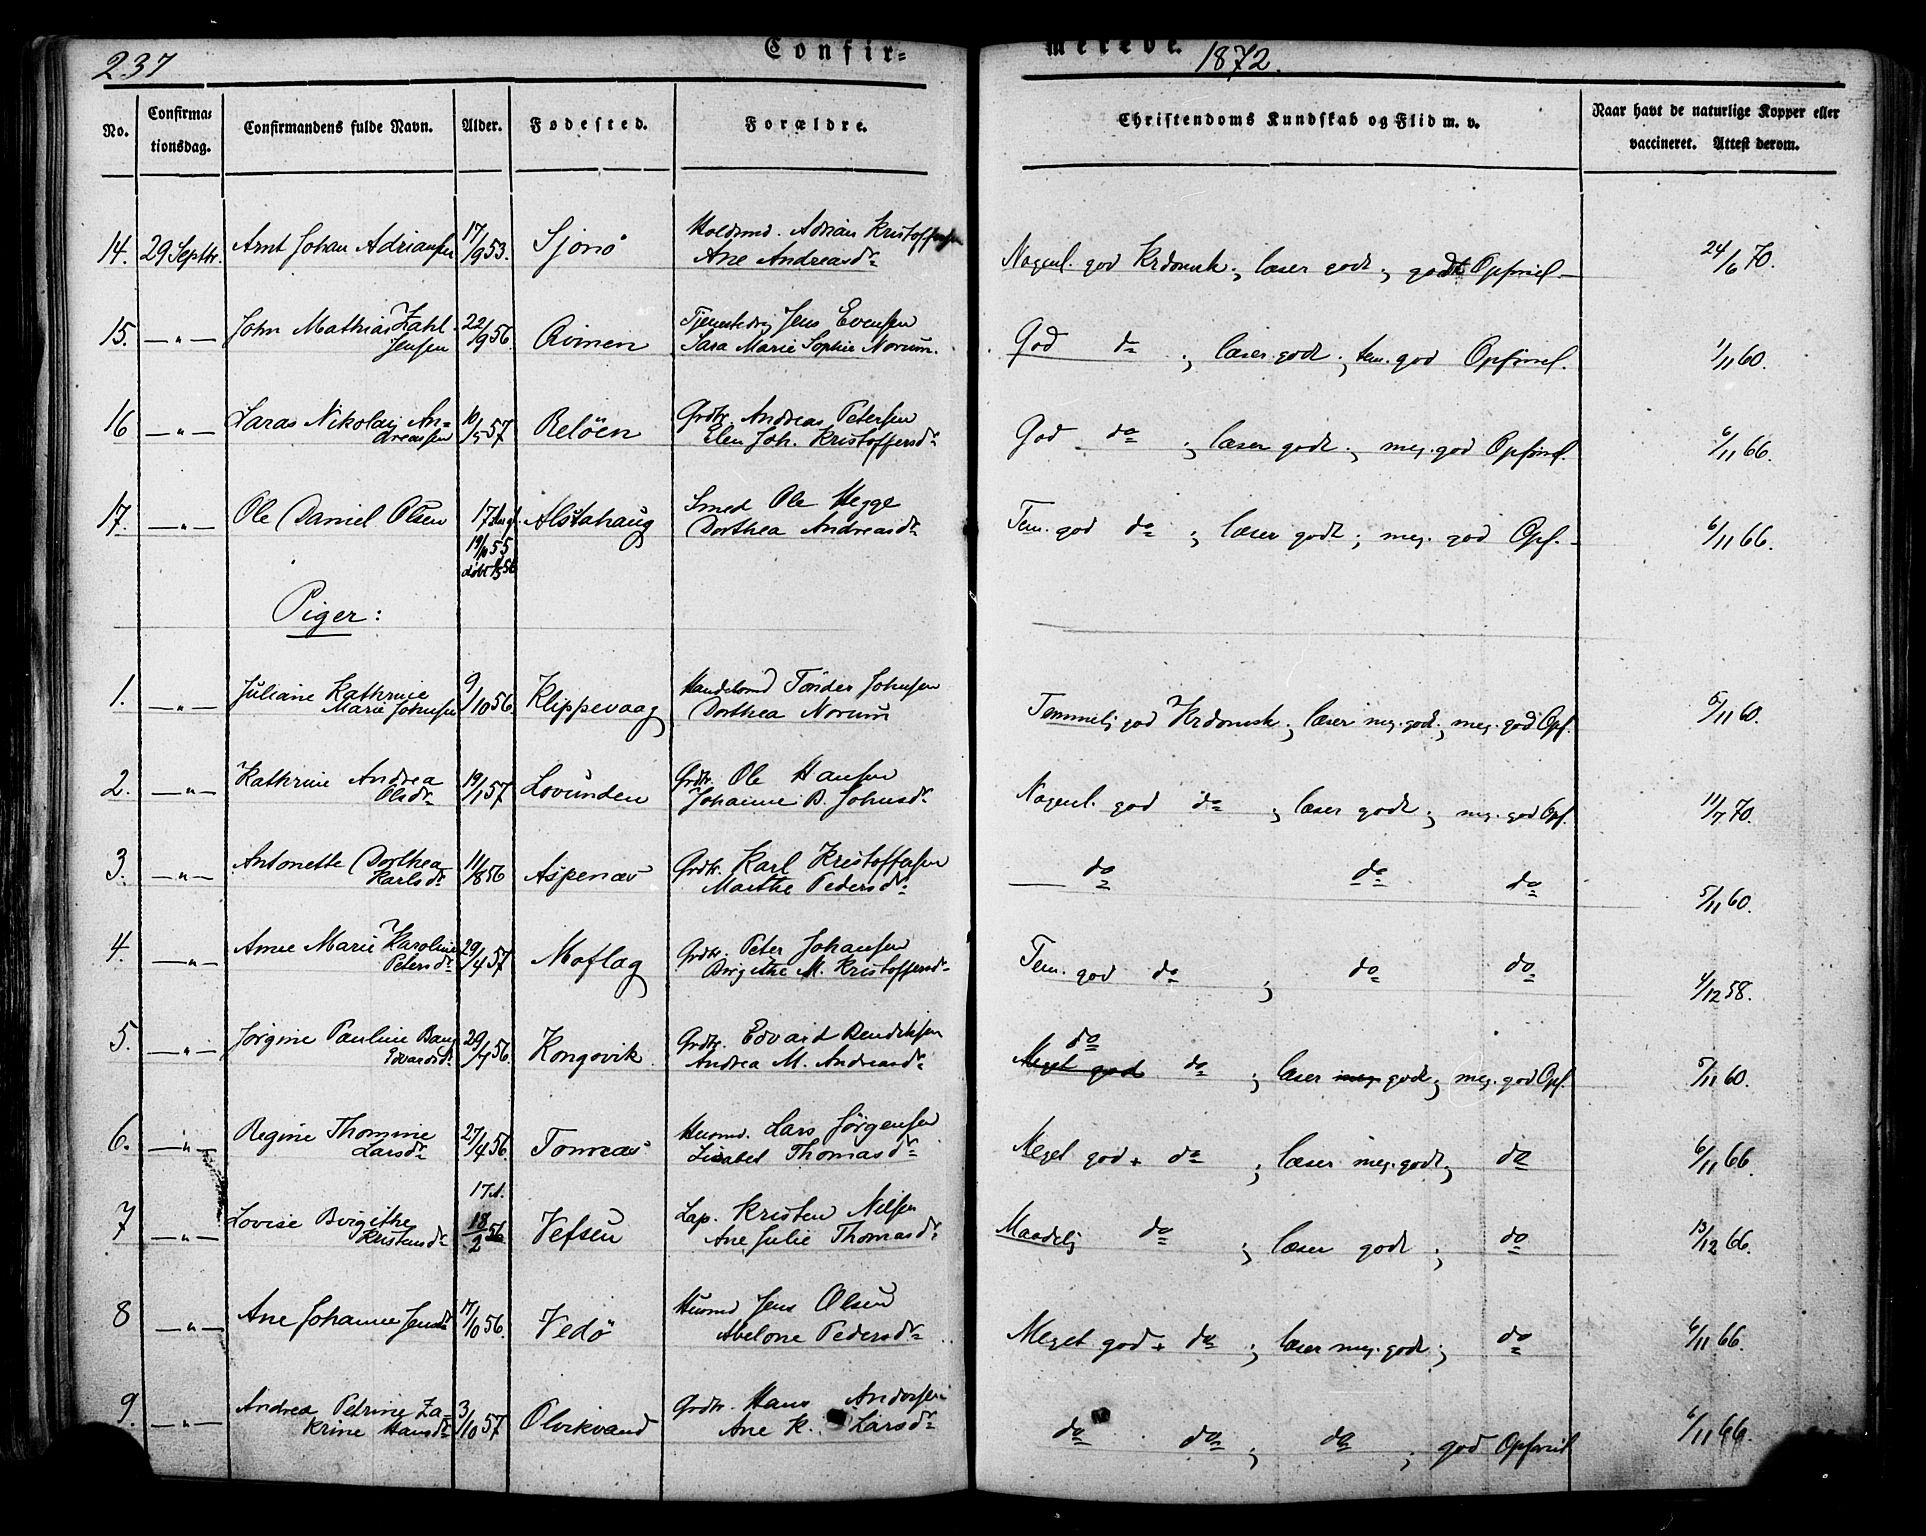 237
Confir-
merede.
1872.
No.
Confirma-
tionsdag.
Confirmandens fulde Navn.
Alder.
Fødested.
Forældre.
Christendoms Kundskab og Flid m. v.
Naar havt de naturlige Kopper eller
vaccineret. Attest derom.
14. 29 Septbr. Arnt Johan Adriansen 17/9 53. Sjonø
Adrian Kristoffersen
Ane Andreasdr
Nogenl. god Krdomsk; læser godt; godt Opførsel 24/6 70.
15. — " — John Mathias Zahl
Jensen
22/9 56. Jens Evensen
Sara Marie Sophie Norum.
God do ; læser godt; tem. god Opførsel. 1/11 60.
16 — " — Laras Nikolay An-
dreassen
10/5 57 Reløen Grdbr. Andreas Petersen
Elen Joh. Kristoffersdr
God do ; læser godt; meg. god Opførsel. 6/11 66.
17. — " — Ole Daniel Olsen 17 Alstahaug Smed Ole Hegge
Dorthea Andreasdr
55
døbt 56
Tem. god do ; læser godt; meg. god Opf. 6/11 66.
Piger:
1. — " — Juliane Kathrine
Marie Johnsen
9/10 56. Klippevaag Handelsmd Tønder Johnsen
Dorthea Norum
Temmelig god Krdomsk; læser meg. godt; meg. god Opf. 5/11 60.
2. — " — Kathrine Andrea
Olsdr
19/1 57 Lovunden Grdbr. Ole Hansen
Johanne B. Johnsdr
Nogenl. god do ; læser godt; meg. god Opf. 11/7 70.
3. — " — Antonette Dorthea
Karlsdr
11/8 56 Aspenæs Grdbr. Karl Kristoffersen
Marthe Pedersdr
do do do 5/11 60.
4. — " — Anne Marie Karoline
Petersdr
29/4 57 Moflag Grdbr. Peter Johansen
Birgithe M. Kristoffersdr
Tem. god do ; do do 4/12 58.
5. — " — Jørgine Pauline Bang
Edvardsdr
56. Kongsvik Grdbr. Edvard Bendiksen
Andrea M. Andreasdr
do
Meget god do ; læser meg. godt; meg. god Opf. 5/11 60.
6. — " — Regine Thomine
Larsdr
27/4 56. Tonnes Husmd. Lars Jørgensen
Lisabet Thomasdr
Meget god + do ; læser meg. godt; do 6/11 66.
7 — " — Lovise Birgithe
Kristensdr
17 A.
18/2 56 Vefsen Lap. Kristen Nilsen
Ane Julie Thomasdr
Maadelig do ; læser godt ; do 13/12 66.
8 — " — Ane Johanne Jensdr 17/10 56. Vedø Husmd Jens Olsen
Abelone Pedersdr
Meget god + do ; læser meg. godt; do 6/11 66.
9. — " — Andrea Petrine Za-
krine Hansdr
3/10 57 Olvikvand Grdbr. Hans Andorsen
Ane K. Larsdr
do do ; do ; god Opførsel 6/11 66.